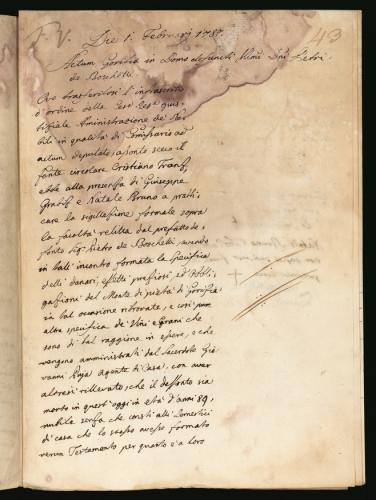 F. V. Die 1. Februarij 1787. 43
Actum Goritia in Domo defuncti Illmi Dni Petri
de Boschetti.
Ove trasferitosi l'infrascritto
d'ordine della Ces: Reg:
Aministrazione de No-
bili in qualità di Comissario ad
actum deputato, assonto seco il
fante circolare Cristiano
ebbe alla presenza di Giuseppe
e Natale Bruno a prati-
care la sigillazione formale sopra
la facoltà relitta dal prefatto de-
fonto Sigr Pietro de Boschetti avendo
in tall' incontro formata la specifica
delli danari, effetti preziosi, ed Obli-
gazioni del Monte di pietà di Gorizia
in tal occasione ritrovate, e così pure
altra specifica de' Vini e grani che
sono di tal raggione in essere, e che
vengono amministrati dal Sacerdote Gio-
vanni agente di Casa, con aver
altresì rillevato, che il deffonto sia
morto in quest' oggi in età d'anni 89,
nubile senza che consti alli Domestici
di casa che lo stesso avesse formato
verun Testamento per quanto è a loro